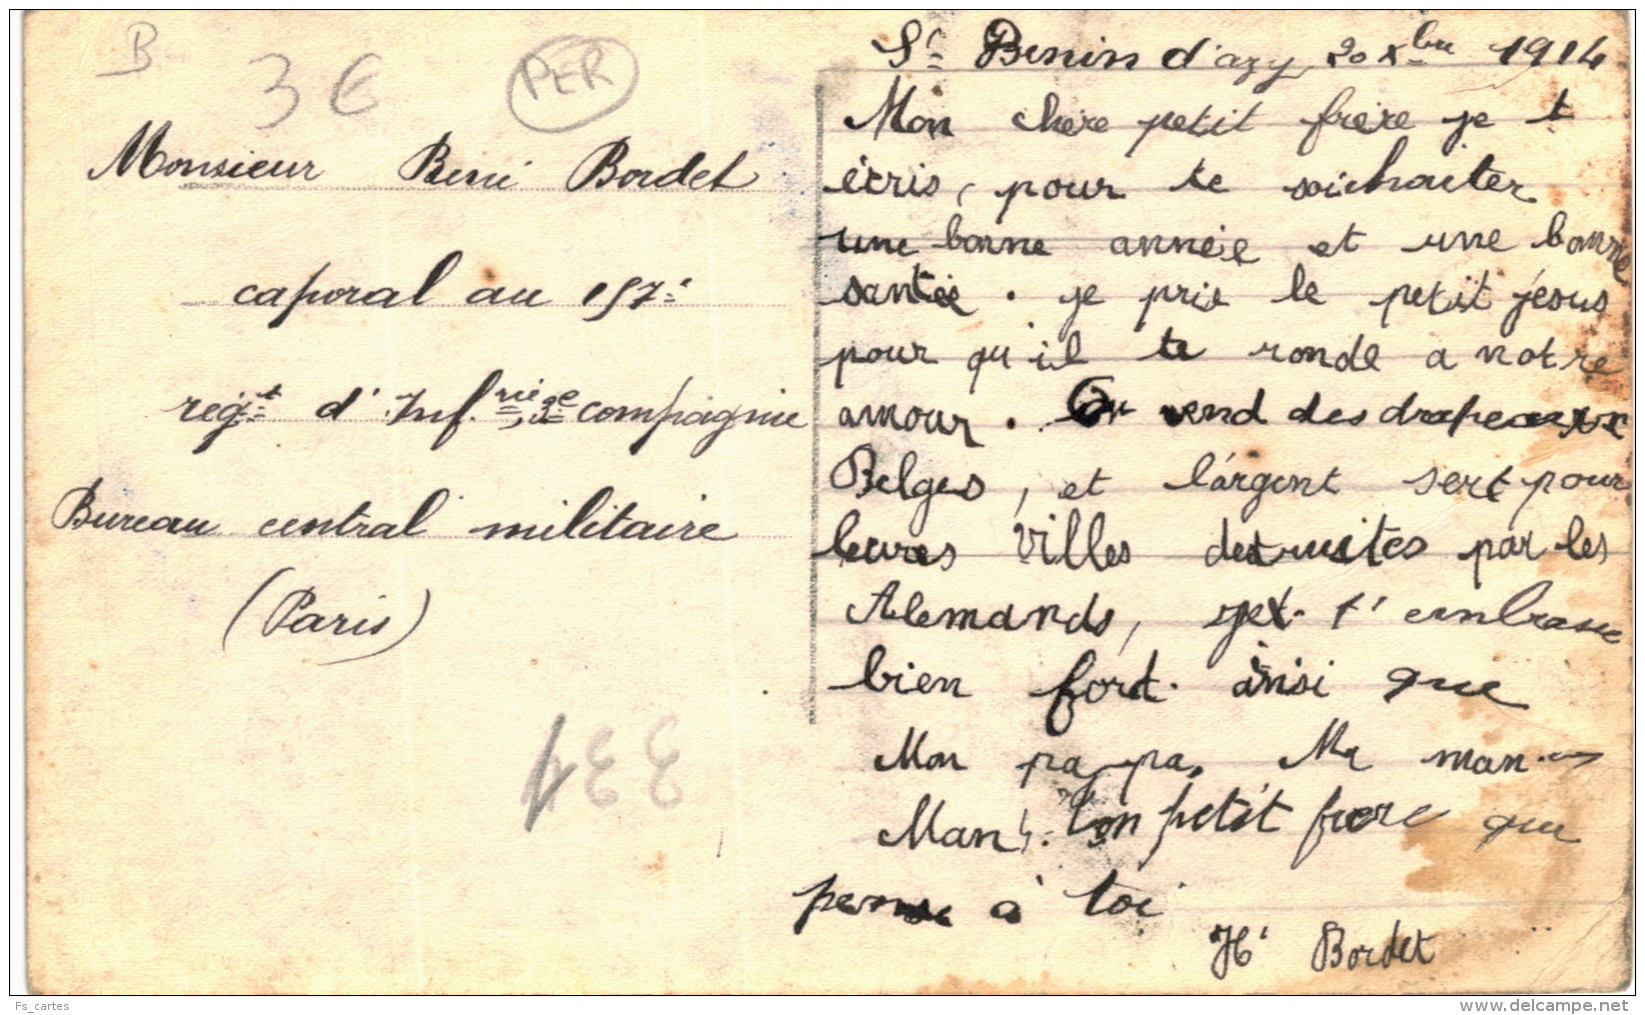 B
3 €
PER
Monsieur René Bordet
caporal au 157e
regt d'Infrie, 2e compagnie
Bureau central militaire
(Paris)
St Benin d'azy, 20 Xbre 1914
Mon chere petit frere je t
écris, pour te souhaiter
une bonne année et une bonne
santée. je prie le petit jésus
pour qu'il te ronde a notre
amour. On vend des drapeaux
Belges, et l'argent sert pour
leures villes detruites par les
Alemands, je t'embrasse
bien fort. ainsi que
Mon papa, Ma man-
Man. Ton petit frere qui
pense à toi
Hi Bordet
Fs_cartes
www.delcampe.net